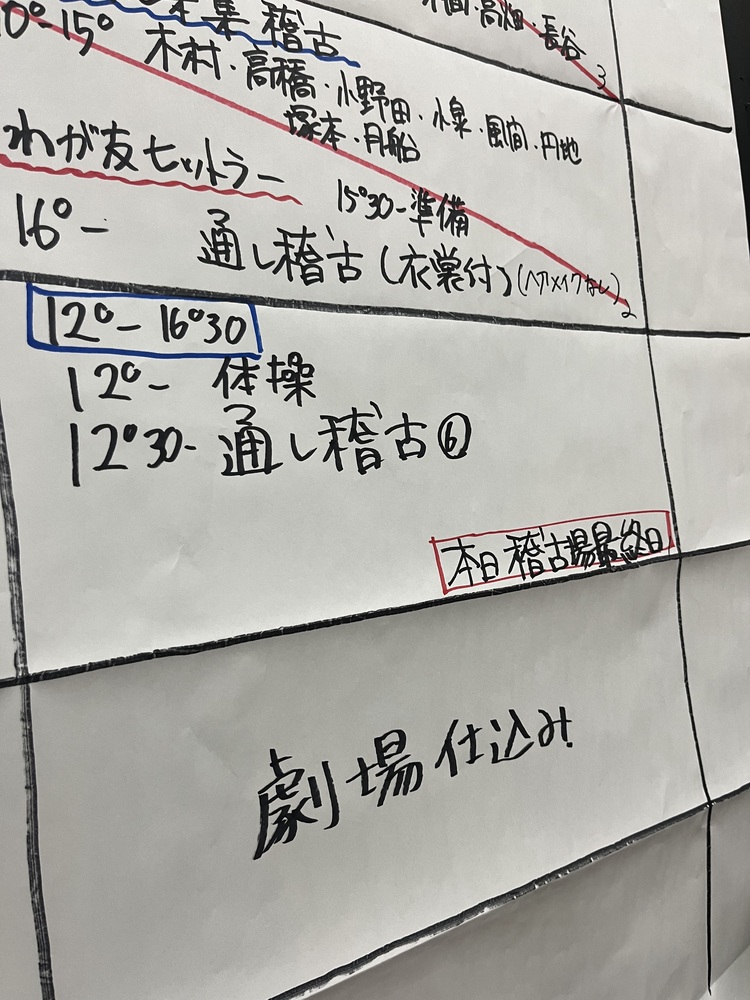 高畑・長谷
3
集稽古
10°-15° 木村・高橋・小野田・小泉・風間・円地
塚本・月船
わが友ヒットラー
15°30-準備
16°- 通し稽古(衣裳付)(ヘアメイクなし)
2
12°-16°30
12°- 体操
12°30- 通し稽古⑥
本日稽古場最終日
劇場仕込み